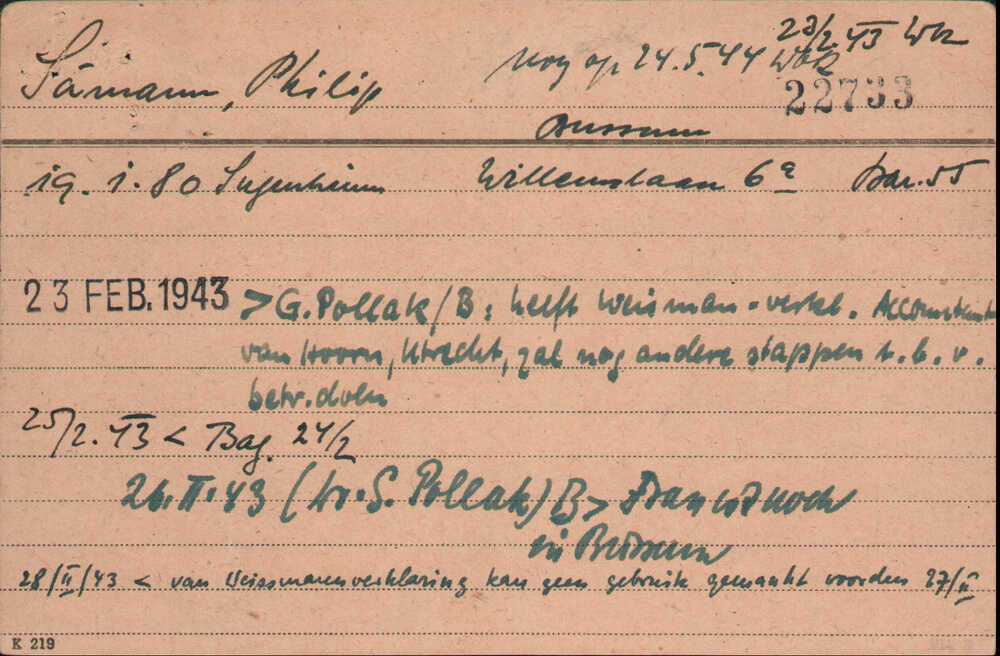 23/2.43 Wk
Särmann, Philip nog op 24.5.44 Wbk
22733
Bussum
19.1.80 Sugenheim Willemslaan 6a Bar. 55
23 FEB. 1943 > G. Pollak/B: heeft Weisman-verkl. Accountant
van Hoorn, Utrecht, zal nog andere stappen t.b.v.
betr. doen
25/2.43 < Bag. 24/2
26.II.43 (Dr. S. Pollak) B > Frau ist noch
in Bussum
28/II/43 < van Weissmannverklaring kan geen gebruik gemaakt worden 27/II
K 219